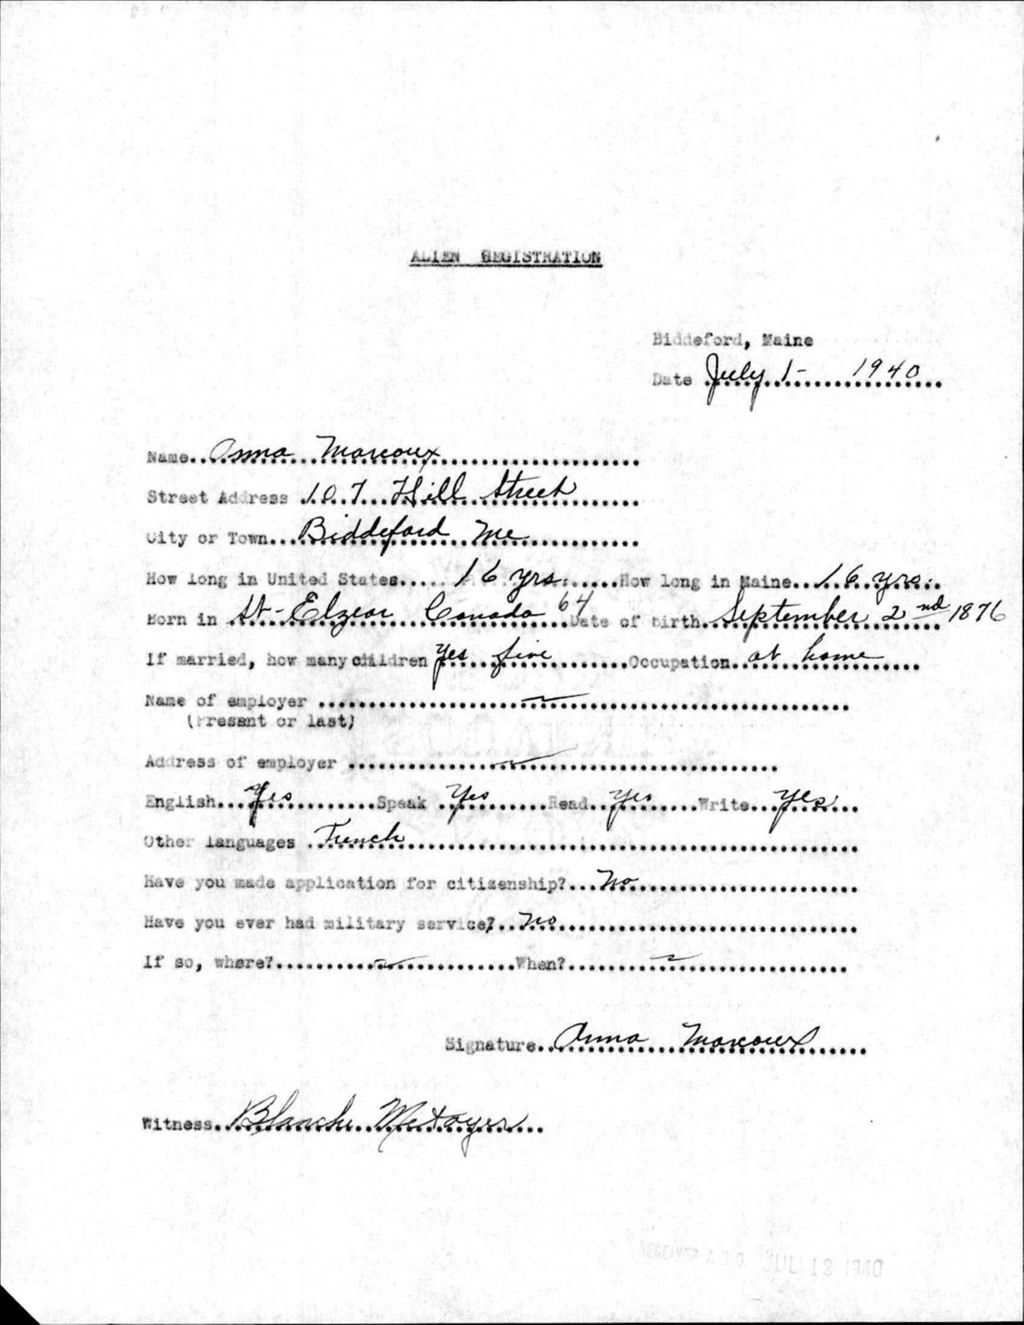 ALIEN REGISTRATION
Biddeford, Maine
Date July 1- 1940
Name Anna Marcoux
Street Address 107 Hill Street
City or Town Biddeford Me
How long in United States 16 yrs. How long in Maine 16 yrs.
Born in St-Elzear Canada 64 Date of birth September 2nd 1876
If married, how many children Yes five Occupation at home
Name of employer
(Present or last)
Address of employer
English Yes Speak Yes Read Yes Write Yes
Other languages French
Have you made application for citizenship? No
Have you ever had military service? No
If so, where? When?
Signature Anna Marcoux
Witness Blanche Metayer
RECEIVED A.G.O. JUL 13 1940